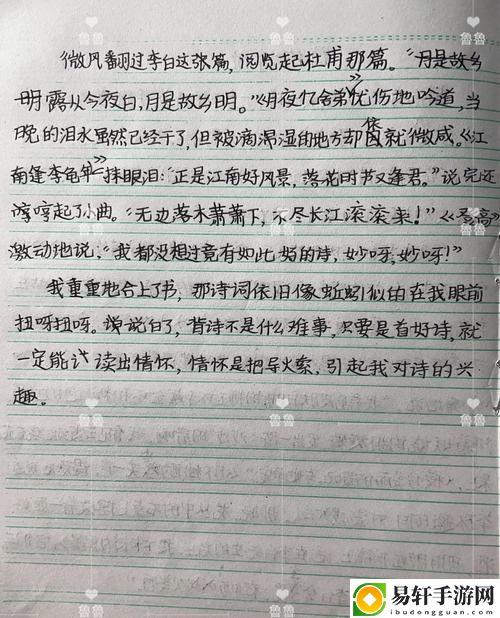 微风翻过李白这张篇，阅览起杜甫那篇。“月是故乡
明露从今夜白，月是故乡明。”《月夜忆舍弟》忧伤地吟道，当
晚的泪水虽然已经干了，但被滴湿的地方却依就微咸。《江
南逢李龟年》一抹眼泪：“正是江南好风景，落花时节又逢君。”说完还
哼哼起了小曲。“无边落木萧萧下，不尽长江滚滚来！”《登高》
激动地说，“我都没想过竟有如此好的诗，妙呀，妙呀！”
我重重地合上了书，那诗词依旧像蚯蚓似的在我眼前
扭呀扭呀。说白了，背诗不是什么难事，只要是首好诗，就
一定能读出情怀，情怀是把导火索，引起我对诗的兴
趣。
鲁鲁
易轩手游网
ibudongduo.com